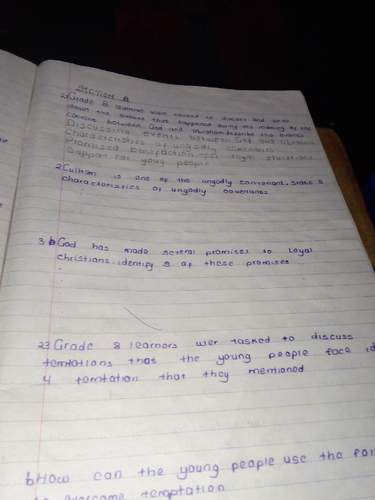 SECTION B
21 Grade 8 learners were tasked to discuss and write
down the events that happened during the making of the
between God and Abraham describe the events
Discussing events between God and Abraham
characteristics of ungodly covenants
Promised to loyal christians
Support for young people
2 is one of the ungodly convenant. State 5
characteristics of ungodly covenants
3 b God has made several promises to Loyal
christians. identify 5 of these promises
23 Grade 8 learners wer tasked to discuss
temtations that the young people face id
4 temtation that they mentioned
b How can the young people use the fai
overcome temptation